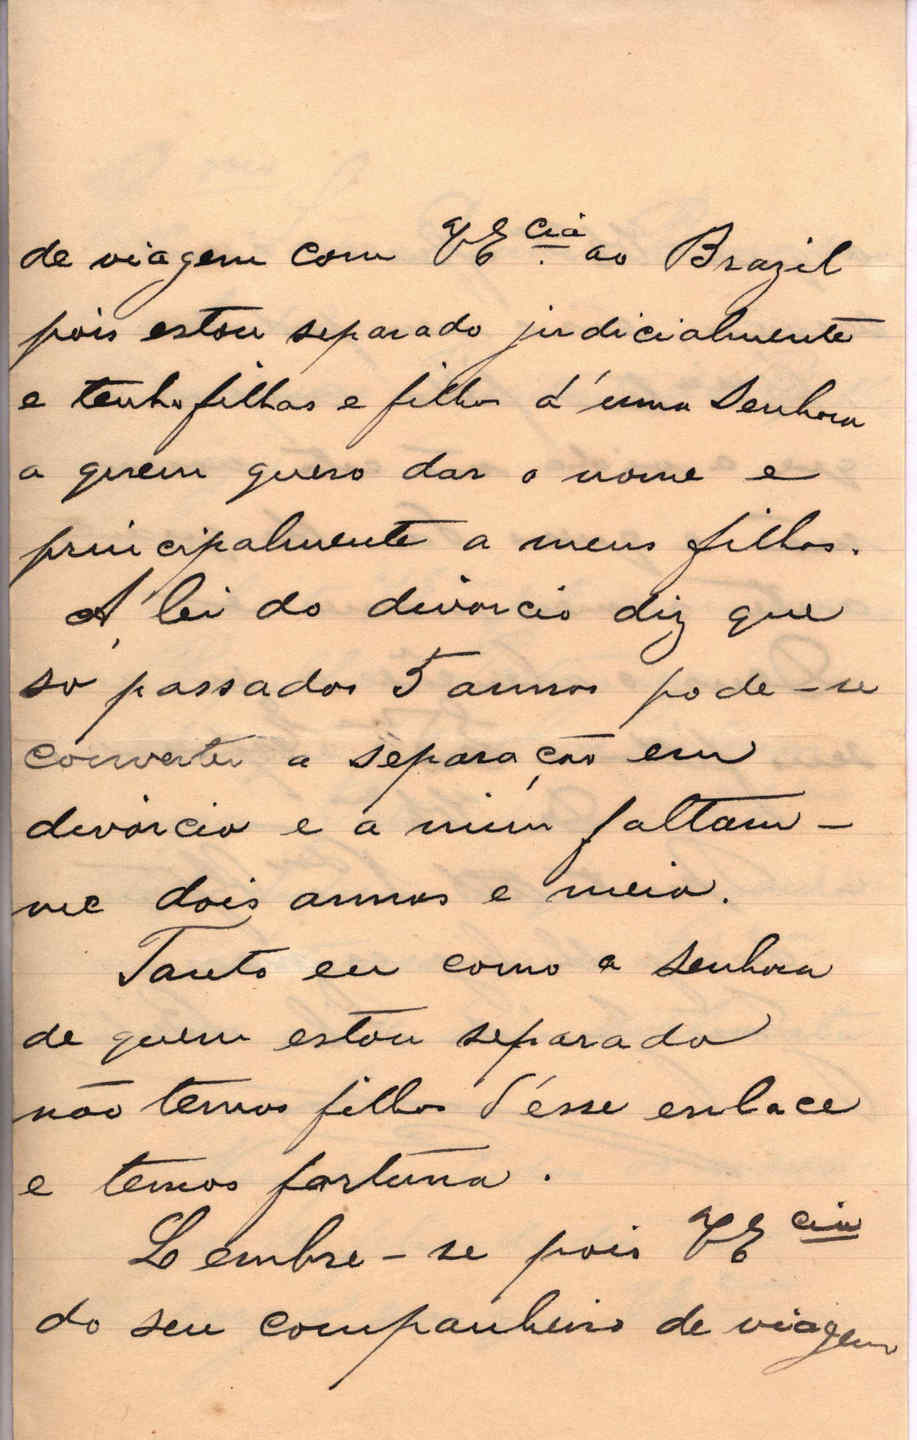 de viagem com V E.cia ao Brazil
pois estou separado judicialmente
e tenho filhas e filho d'uma Senhora
a quem quero dar o nome e
principalmente a meus filhos.
A lei do divorcio diz que
só passados 5 annos pode-se
converter a separação em
divórcio e a mim faltam-
me dois annos e meio.
Tanto eu como a Senhora
de quem estou separado
não temos filhos d'esse enlace
e temos fortuna.
Lembre-se pois V E cia
do seu companheiro de viagem